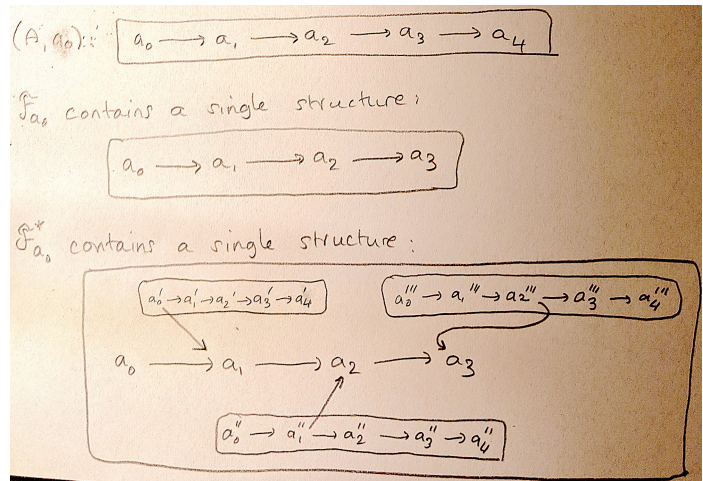 (A, a₀):: a₀ → a₁ → a₂ → a₃ → a₄
F̃a₀ contains a single structure:
a₀ → a₁ → a₂ → a₃
F̃*a₀ contains a single structure:
a₀' → a₁' → a₂' → a₃' → a₄'
a₀''' → a₁''' → a₂''' → a₃''' → a₄'''
a₀ → a₁ → a₂ → a₃
a₀'' → a₁'' → a₂'' → a₃'' → a₄''